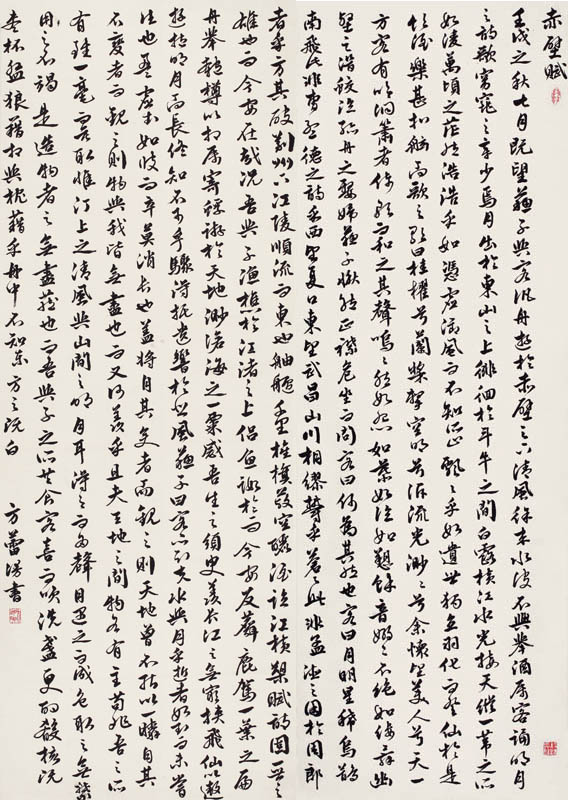 赤壁賦
壬戌之秋七月既望蘇子與客汎舟遊於赤壁之下清風徐來水波不興舉酒屬客誦明月
之詩歌窈窕之章少焉月出於東山之上徘徊於斗牛之間白露橫江水光接天縱一葦之所
如凌萬頃之茫然浩浩乎如憑虛御風而不知所止飄飄乎如遺世獨立羽化而登仙於是
飲酒樂甚扣舷而歌之歌曰桂櫂兮蘭槳擊空明兮泝流光渺渺兮余懷望美人兮天一
方客有吹洞簫者倚歌而和之其聲嗚嗚然如怨如慕如泣如愬餘音嫋嫋不絕如縷舞幽
壑之潛蛟泣孤舟之嫠婦蘇子愀然正襟危坐而問客曰何為其然也客曰月明星稀烏鵲
南飛此非曹孟德之詩乎西望夏口東望武昌山川相繆鬱乎蒼蒼此非孟德之困於周郎
者乎方其破荊州下江陵順流而東也舳艫千里旌旗蔽空釃酒臨江橫槊賦詩固一世之
雄也而今安在哉況吾與子漁樵於江渚之上侶魚友麋鹿駕一葉之扁
舟舉匏樽以相屬寄蜉蝣於天地渺滄海之一粟哀吾生之須臾羨長江之無窮挾飛仙以遨
遊抱明月而長終知不可乎驟得托遺響於悲風蘇子曰客亦知夫水與月乎逝者如斯而未嘗
往也盈虛如彼而卒莫消長也蓋將自其變者而觀之則天地曾不能以一瞬自其
不變者而觀之則物與我皆無盡也而又何羨乎且夫天地之間物各有主苟非吾之所
有雖一毫而莫取惟江上之清風與山間之明月耳得之而為聲目遇之而成色取之無禁
用之不竭是造物者之無盡藏也而吾與子之所共食客喜而笑洗盞更酌殽核既
盡杯盤狼藉相與枕藉乎舟中不知東方之既白
方蕾書